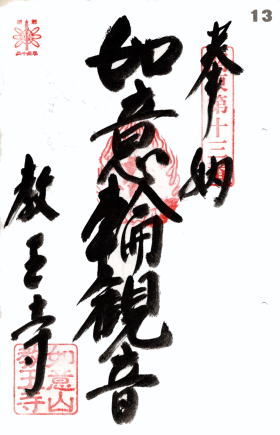 13
奉納
第十三
如意輪観音
教王寺
如意山
教王寺